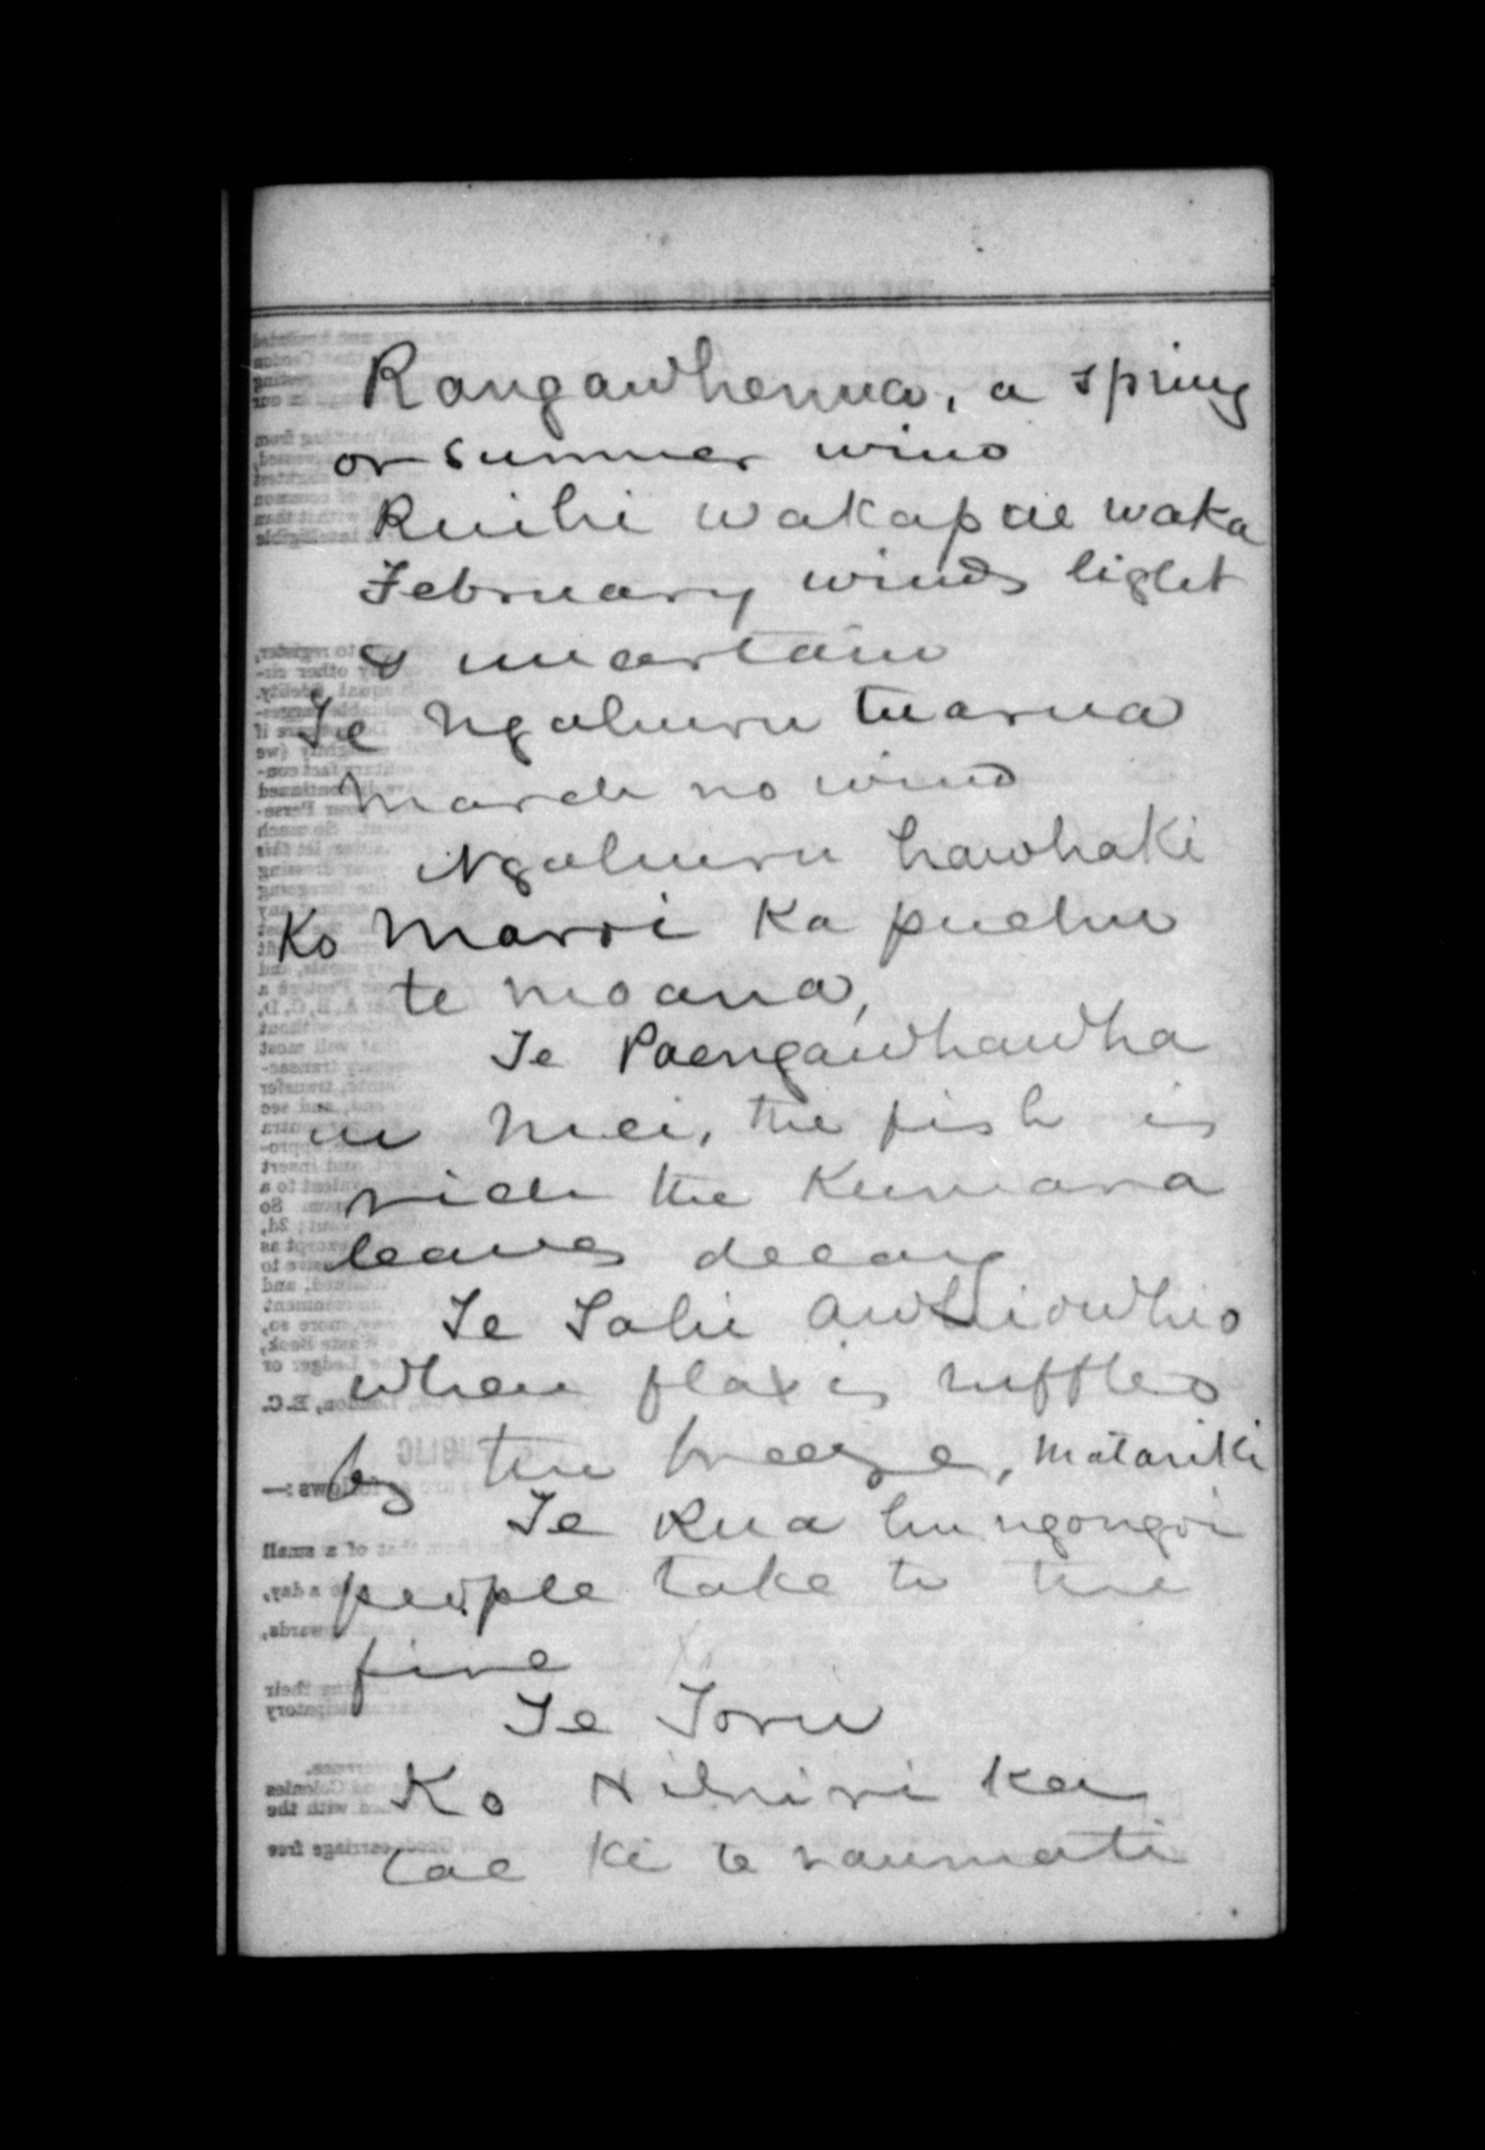 Rangawhenua, a spring
or summer wind
Ruihi wakapae waka
February winds light
& uncertain
Te Ngahuru tuarua
March no wind
Ngahuru hawhaki
Ko Maroi Ka puehu
te moana,
Te Paengawhawha
in Mei, the fish is
rich the Kumara
leaves decay
Te Tahi awhiowhio
when flax is ruffled
by the breeze, Matariki
Te Rua hu ngongoi
people take to the
fire
Te Toru
Ko ka
tae ki te raumati